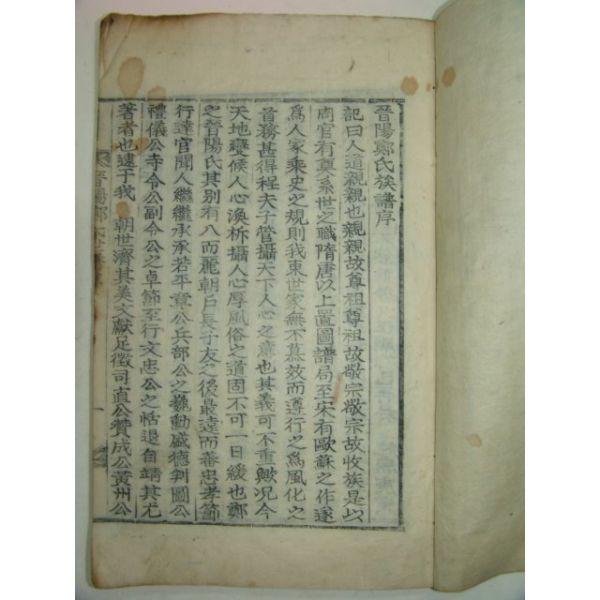 晉陽鄭氏族譜序
記曰人道親親也親親故尊祖尊祖故敬宗敬宗故收族是以
周官有奠系世之職隋唐以上置圖譜局至宋有歐蘇之作遂
爲人家乘史之規則我東世家無不慕效而遵行之爲風化之
首務甚得程夫子管攝天下人心之意也其義可不重歟況今
天地變候人心渙柝攝人心厚風俗之道固不可一日緩也鄭
之晉陽氏其別有八而麗朝戶長子友之後最遠而蕃忠孝節
行達官聞人繼繼承承若平章公兵部公之巍勳盛德判圖公
禮儀公寺令公副令公之卓節至行文忠公之恬退自靖其尤
著者也逮于我 朝世濟其美文獻足徵司直公贊成公黃州公
晉陽鄭氏
一